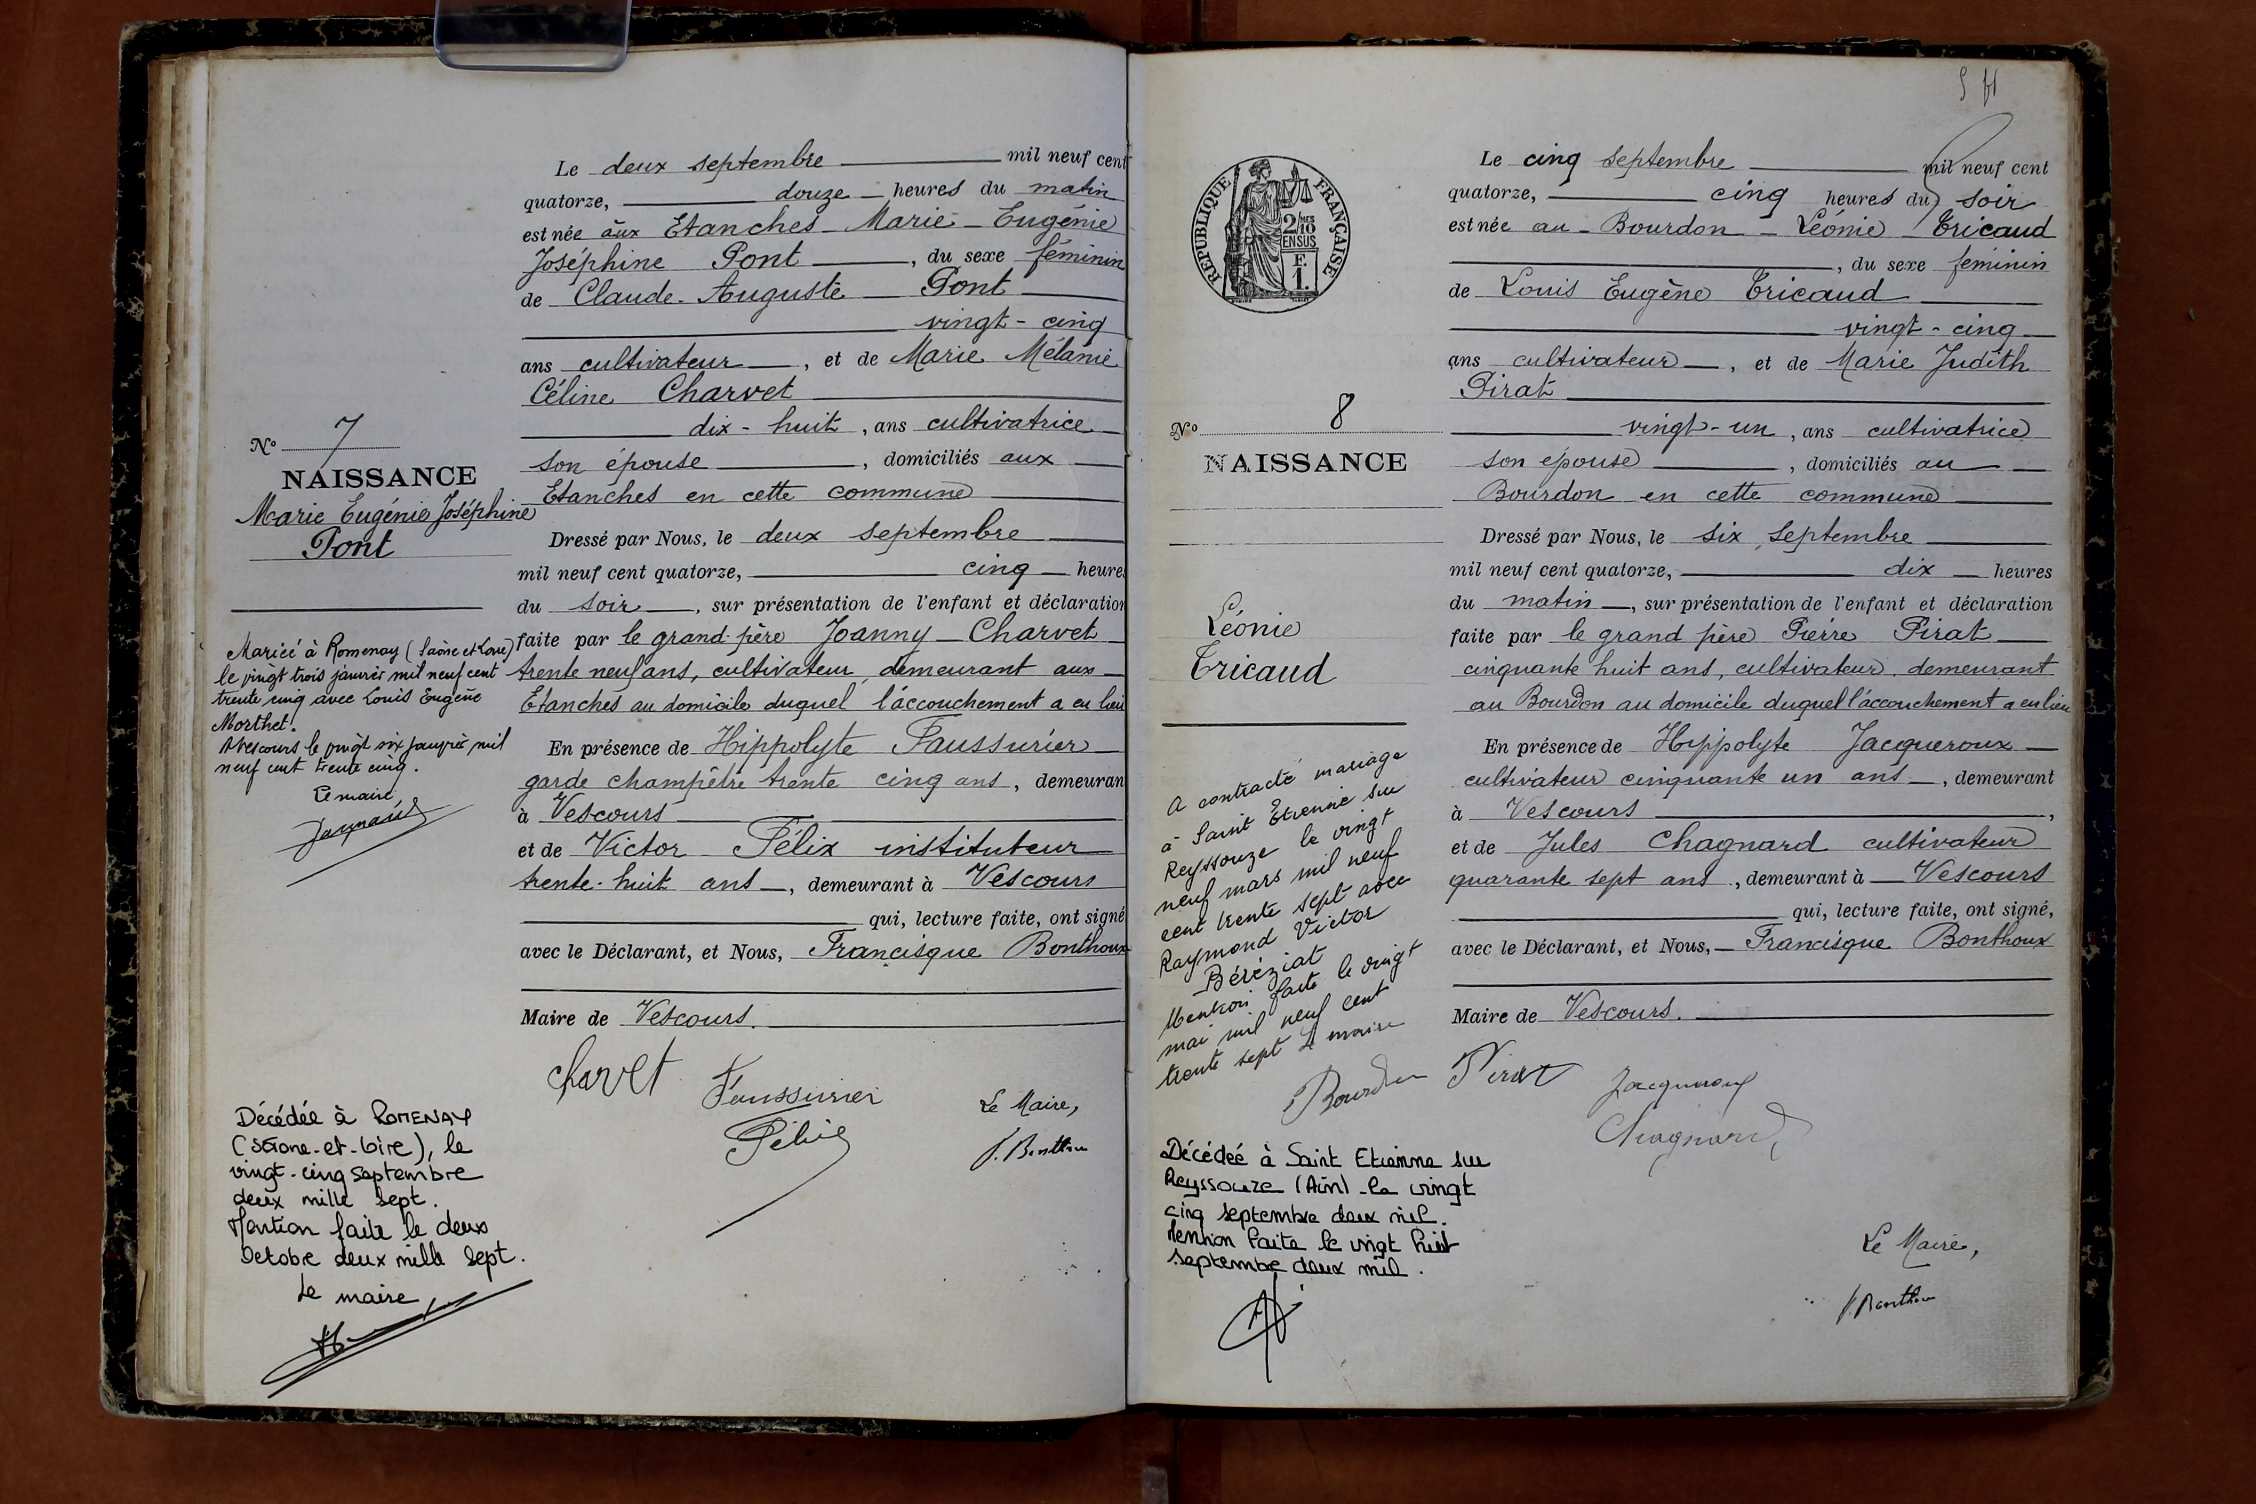 Le deux septembre mil neuf cent
quatorze, douze heures du matin
est née aux Etanches Marie-Eugénie
Joséphine Pont, du sexe féminin
de Claude-Auguste Pont
vingt-cinq
ans cultivateur, et de Marie Mélanie
Céline Charvet
dix-huit, ans cultivatrice
son épouse, domiciliés aux
Etanches en cette commune
Dressé par Nous, le deux septembre
mil neuf cent quatorze, cinq heures
du soir, sur présentation de l'enfant et déclaration
faite par le grand-père Joanny Charvet
trente neuf ans, cultivateur, demeurant aux
Etanches au domicile duquel l'accouchement a eu lieu
En présence de Hippolyte Faussurier
garde champêtre trente cinq ans, demeurant
à Vescours
et de Victor Félix instituteur
trente-huit ans, demeurant à Vescours
qui, lecture faite, ont signé
avec le Déclarant, et Nous, Francisque Bonthoux
Maire de Vescours.
Charvet
Faussurier
Félix
Le Maire,
F. Bonthoux
N° 7
NAISSANCE
Marie Eugénie Joséphine
Pont
Mariée à Romenay (Saône et Loire)
le vingt trois janvier mil neuf cent
trente cinq avec Louis Eugène
Morthet.
A Vescours le vingt six janvier mil
neuf cent trente cinq.
Le maire,
Décédée à ROMENAY
(Saône-et-Loire), le
vingt-cinq septembre
deux mille sept.
Mention faite le deux
Octobre deux mille sept.
Le maire,
Le cinq septembre mil neuf cent
quatorze, cinq heures du soir
est née au Bourdon Léonie Tricaud
, du sexe féminin
de Louis Eugène Tricaud
vingt-cinq
ans cultivateur, et de Marie Judith
Pirat
vingt-un, ans cultivatrice
son épouse, domiciliés au
Bourdon en cette commune
Dressé par Nous, le six septembre
mil neuf cent quatorze, dix heures
du matin, sur présentation de l'enfant et déclaration
faite par le grand père Pierre Pirat
cinquante huit ans, cultivateur demeurant
au Bourdon au domicile duquel l'accouchement a eu lieu
En présence de Hippolyte Jacqueroux
cultivateur cinquante un ans, demeurant
à Vescours,
et de Jules Chagnard cultivateur
quarante sept ans, demeurant à Vescours
qui, lecture faite, ont signé,
avec le Déclarant, et Nous, Francisque Bonthoux
Maire de Vescours.
Pirat
Jacqueroux
Chagnard
Le Maire,
F. Bonthoux
RÉPUBLIQUE FRANÇAISE
2/10
EN SUS
F.
1.
N° 8
NAISSANCE
Léonie
Tricaud
A contracté mariage
à Saint Etienne sur
Reyssouze le vingt
neuf mars mil neuf
cent trente sept avec
Raymond Victor
Béréziat
Mention faite le vingt
mai mil neuf cent
trente sept Le maire
Décédée à Saint Etienne sur
Reyssouze (Ain) le vingt
cinq septembre deux mil.
Mention faite le vingt huit
septembre deux mil.